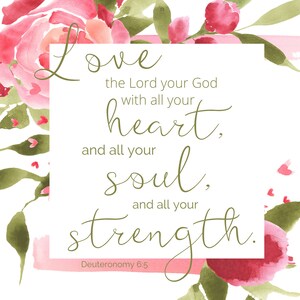 Love
the Lord your God
with all your
heart,
and all your
soul,
and all your
strength.
Deuteronomy 6:5